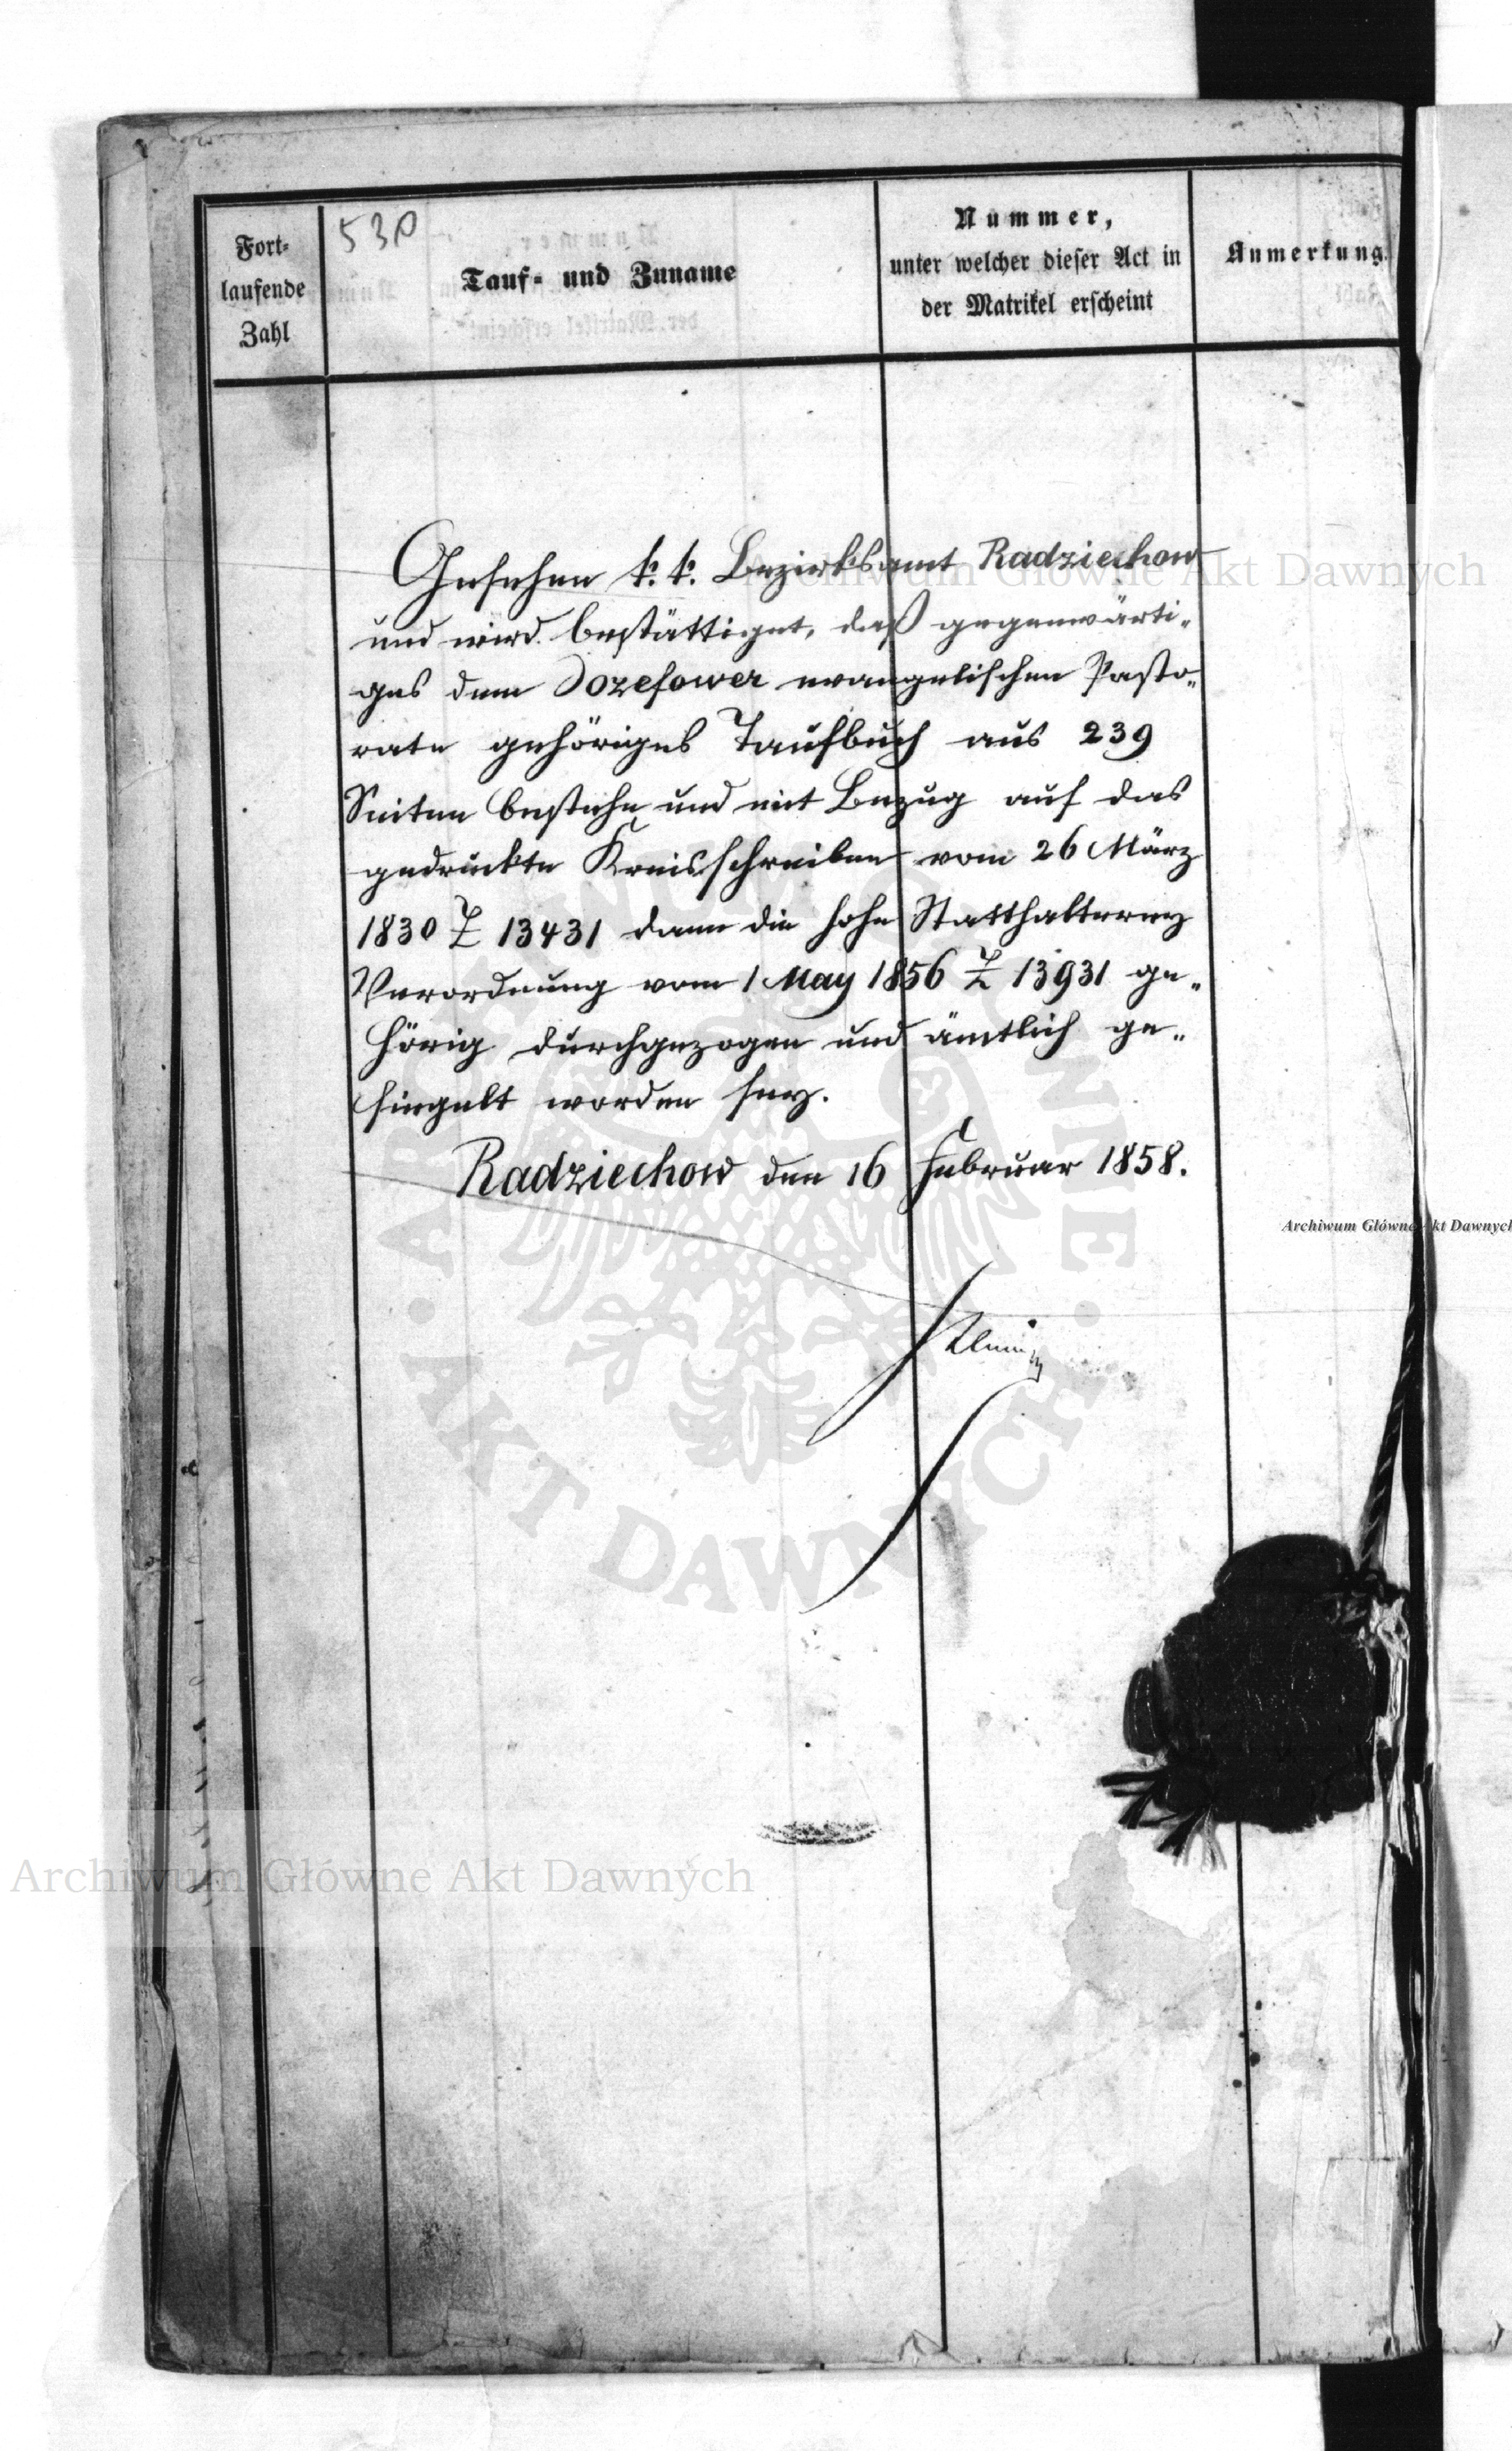 530
Fort-
laufende
Zahl
Tauf- und Zuname
Nummer,
unter welcher dieser Act in
der Matrikel erscheint
Anmerkung.
Gesehen k. k. Bezirksamt Radziechow
und wird bestättiget, daß gegenwärti„
ges dem Jozefower evangelischen Pasto„
rate gehöriges Taufbuch aus 239
Seiten bestehe und mit Bezug auf das
gedruckte Kreisschreiben vom 26 März
1830 Z 13431 dann die hohe Statthalterey
Verordnung vom 1 May 1856 Z 13931 ge„
hörig durchgezogen und ämtlich ge„
siegelt worden sey.
Radziechow den 16 Februar 1858.
Archiwum Główne Akt Dawnych
Archiwum Główne Akt Dawnych
Archiwum Główne Akt Dawnych
AKT DAWNYCH